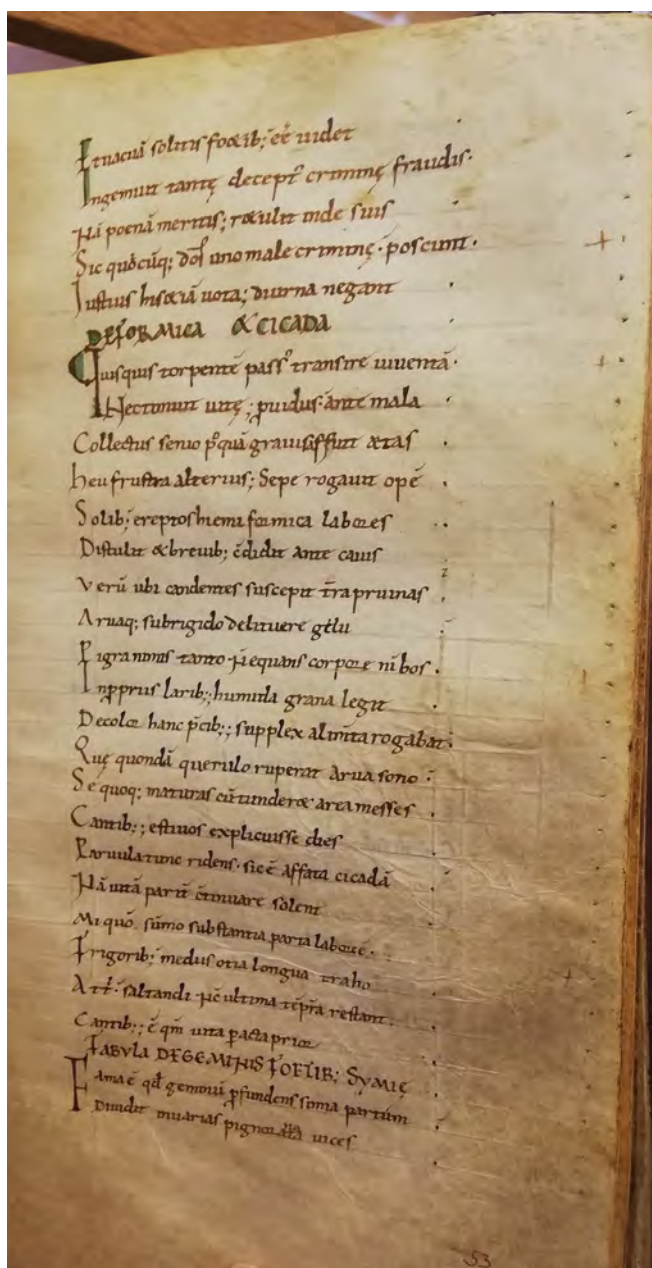 Et vacuā solitis fœtib; eē uidet
Ingemuit tantę decept᾽ crimine fraudis.
Nā poenā meritis; rettulit inde suis
Sic quōcūq; dol᾽ uno male crimine. poscunt.
Iustius his &iā uota; diurna negant
DE FORMICA & CICADA
Quisquis torpentē pass᾽ transire iuuentā.
Nec timuit uitę; ꝓuidus ante mala
Confectus senio p᾽quā grauis affuit ætas
heu frustra alterius; Sepe rogauit opē
Solib; ereptos hiemi formica labores
Distulit & breuib; c̄didit ante cauis
Verū ubi candentes suscepit t̄ra pruinas
Aruaq; sub rigido delituere gelu
Pigra nimis tanto
corpore nībos.
In ꝓpriis larib; humida grana legit
Decolor hanc p̄cib; supplex alim̄ta rogabat.
Quę quondā querulo ruperat arua sono
Se quoq; maturas cū tunder& area messes
Cantib; estiuos explicuisse dies
Paruula tunc ridens. sic ē affata cicadā
Nā uitā parit᾽ c̄tinuare solent
Mi quō. sūmo substantia parta labore.
Frigorib; mediis otia longua traho
At t᾽. saltandi nc̄ ultima tēpr̄a restant.
Cantib; ē qm̄ uita ꝑacta prior
FABVLA DE GEMINIS FOETIB; SYMIĘ
Fama ē qd̄ geminū ꝓfundens simia partum
Diuidit in uarias pignora uices
53